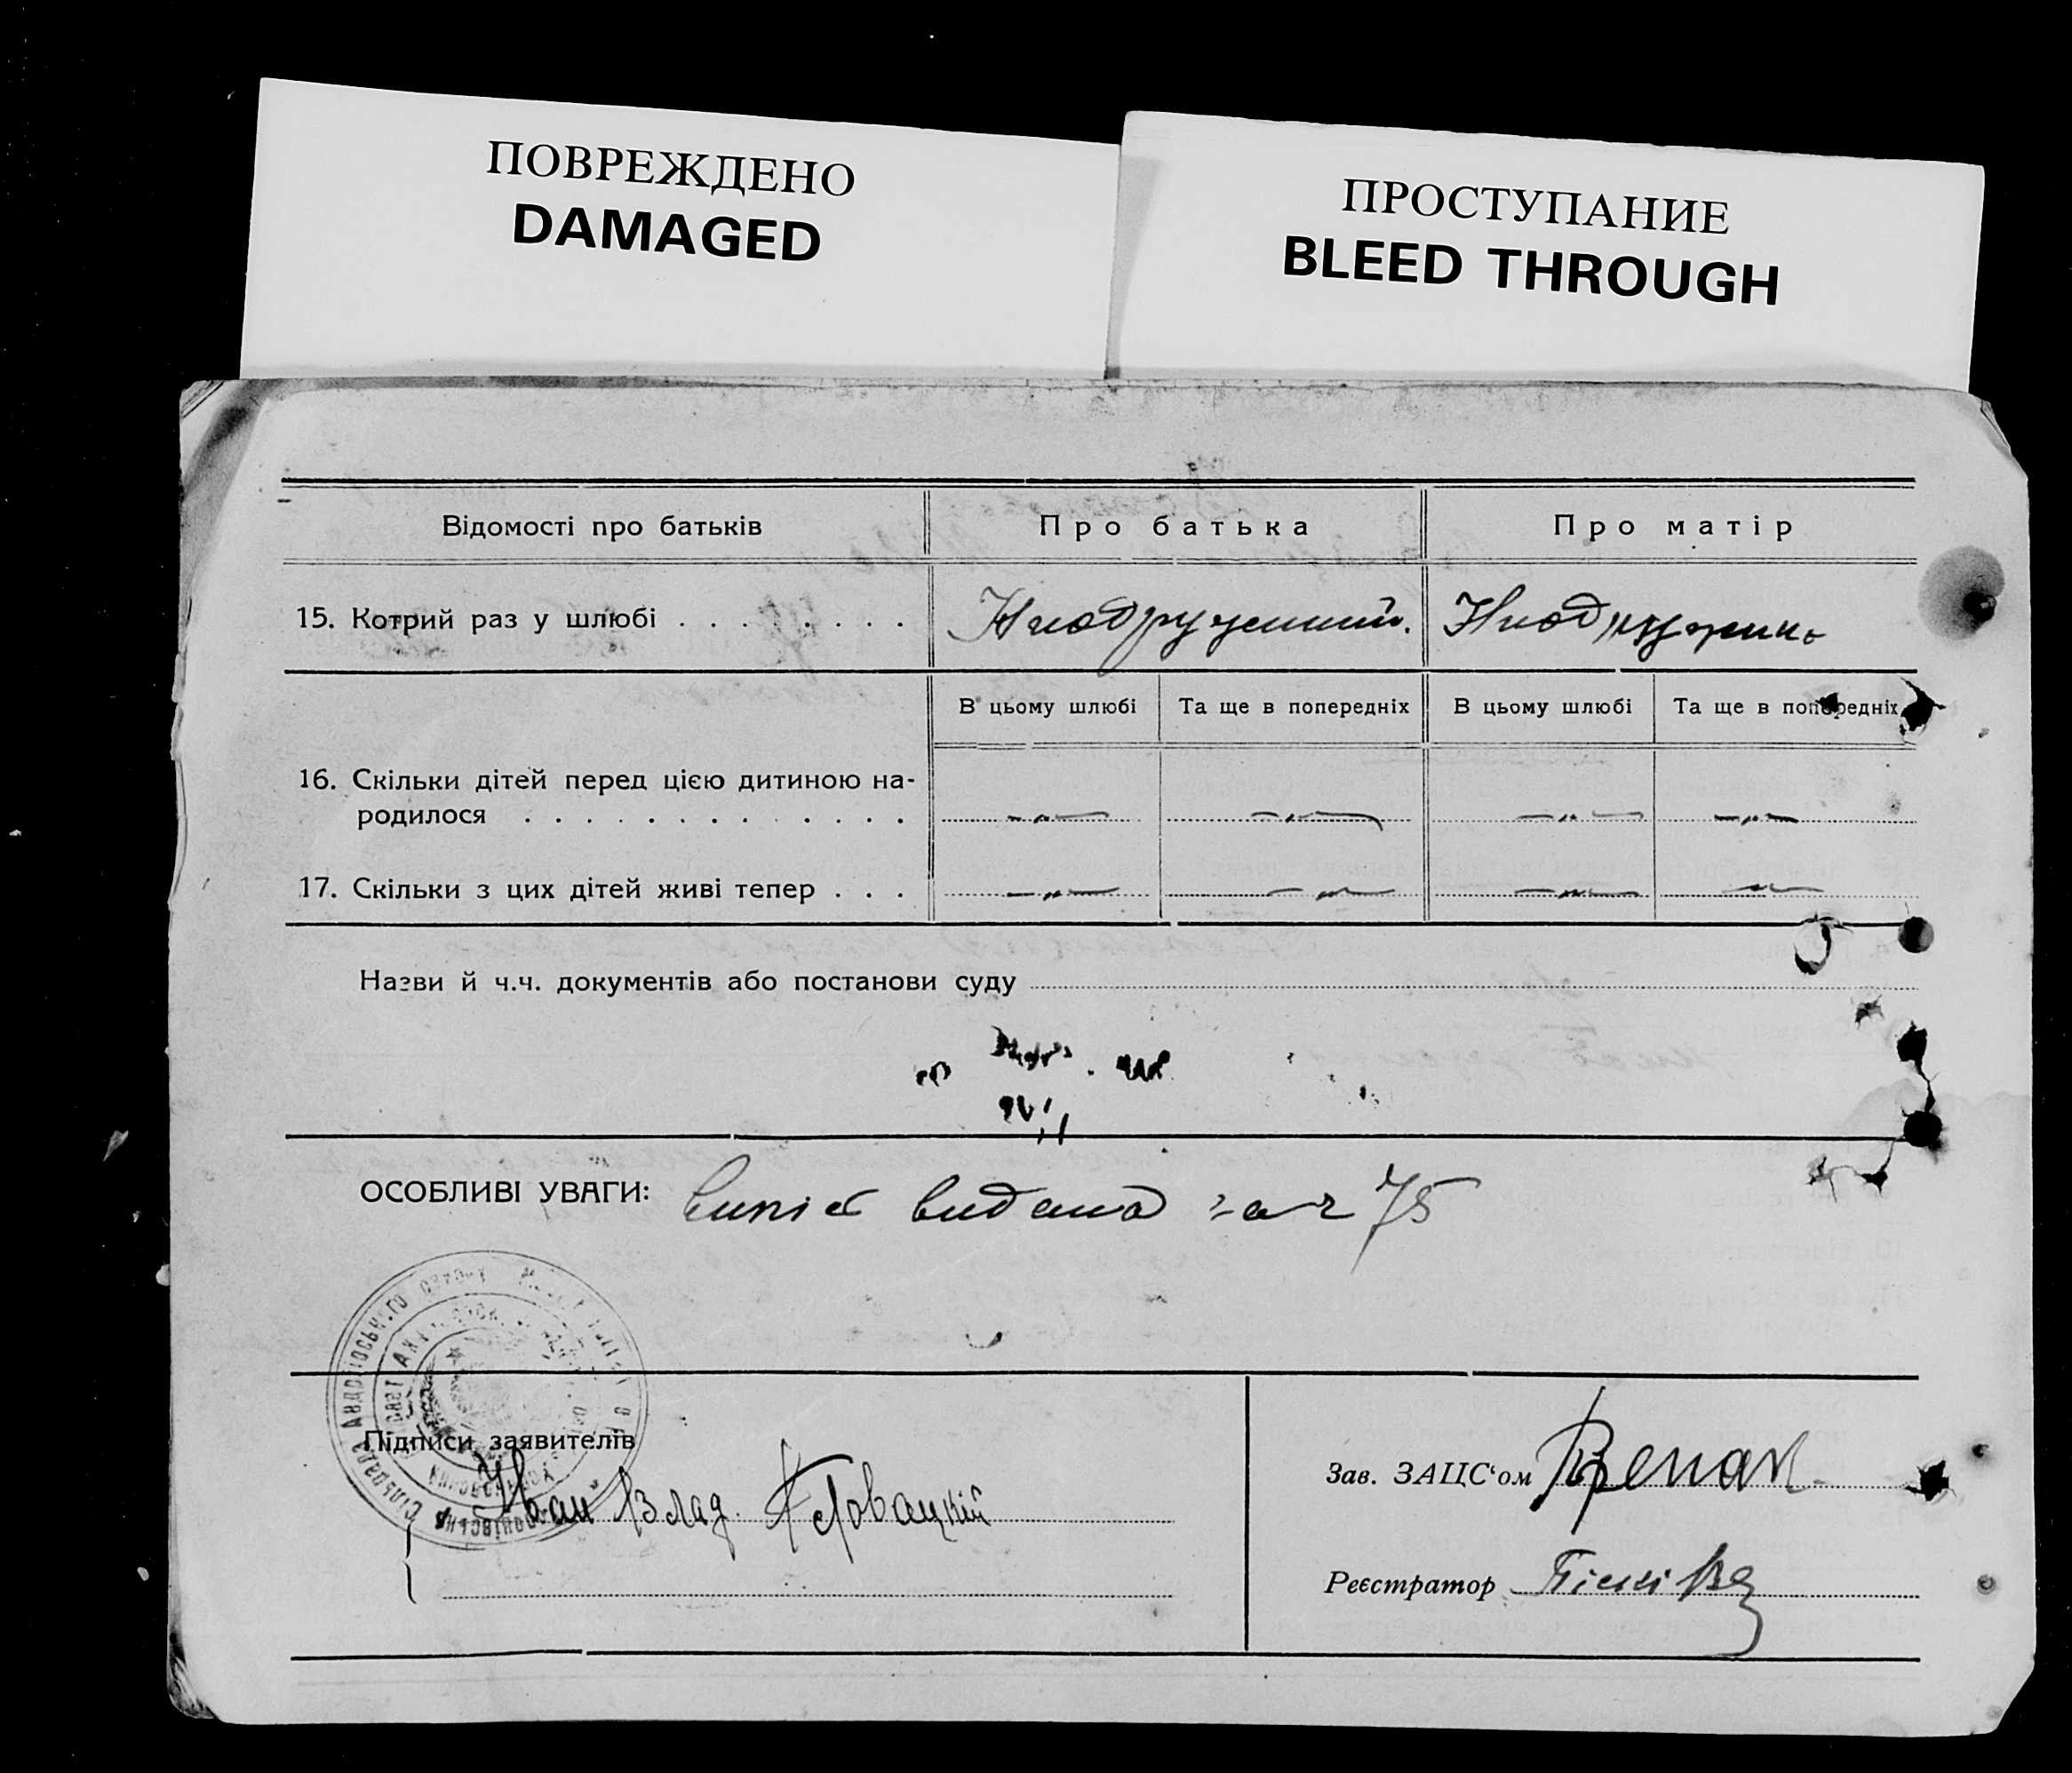 ПОВРЕЖДЕНО
DAMAGED
ПРОСТУПАНИЕ
BLEED THROUGH
Відомості про батьків
Про батька
Про матір
15. Котрий раз у шлюбі . . . . . . . .
В цьому шлюбі
Та ще в попередніх
В цьому шлюбі
Та ще в попередніх
16. Скільки дітей перед цією дитиною на-
родилося . . . . . . . . . . . . .
—„— —„— —„— —„—
17. Скільки з цих дітей живі тепер . . .
—„— —„— —„— —„—
Назви й ч.ч. документів або постанови суду
ОСОБЛИВІ УВАГИ: Випис видано за ч 75
Підписи заявителів
Іван Влад.
Зав. ЗАЦС‘ом
Реєстратор